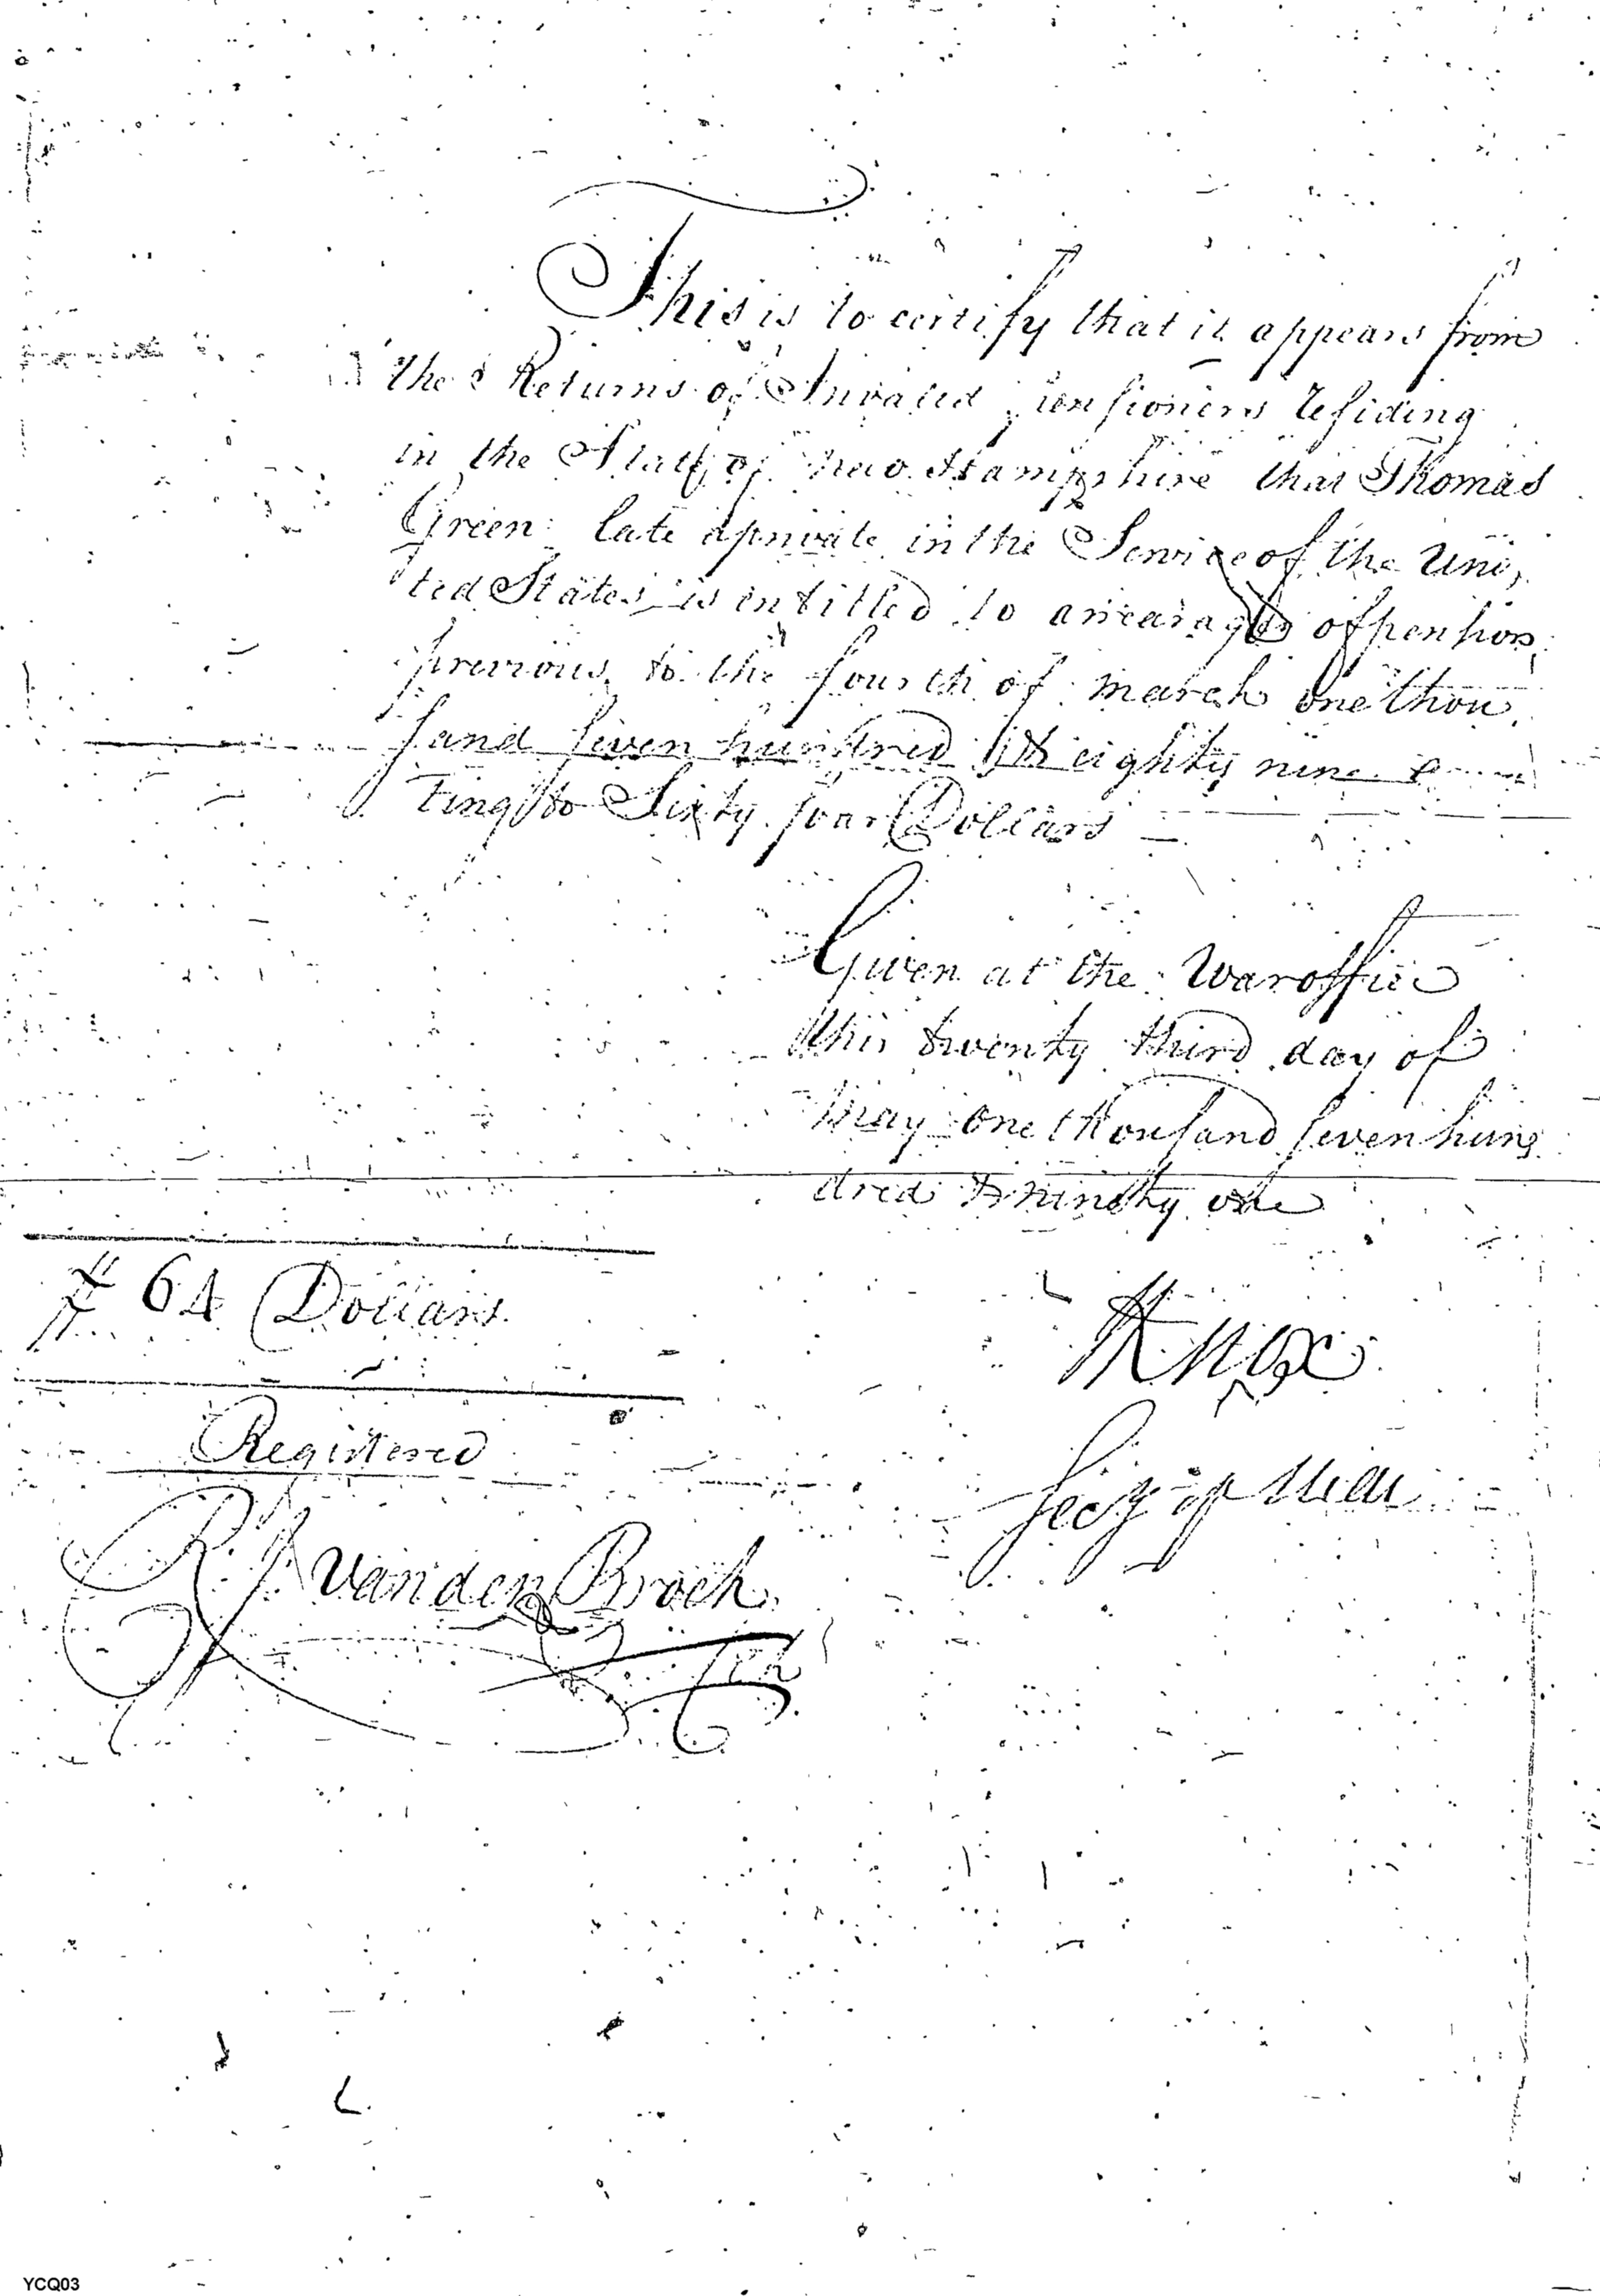 This is to certify that it appears from
the Returns of Invalid pensioners residing
in the State of new Hampshire that Thomas
Green late a private in the Service of the Uni,
ted States is entitled to arrearages of pension
previous to the fourth of march one thou
sand seven hundred & eighty nine
ting to Sixty four Dollars
Given at the War office
this twenty third day of
may one thousand seven hun
dred & ninety one
64 Dollars
HKnox
Secy of War
Registered
R J Vanden Broek
YCQ03